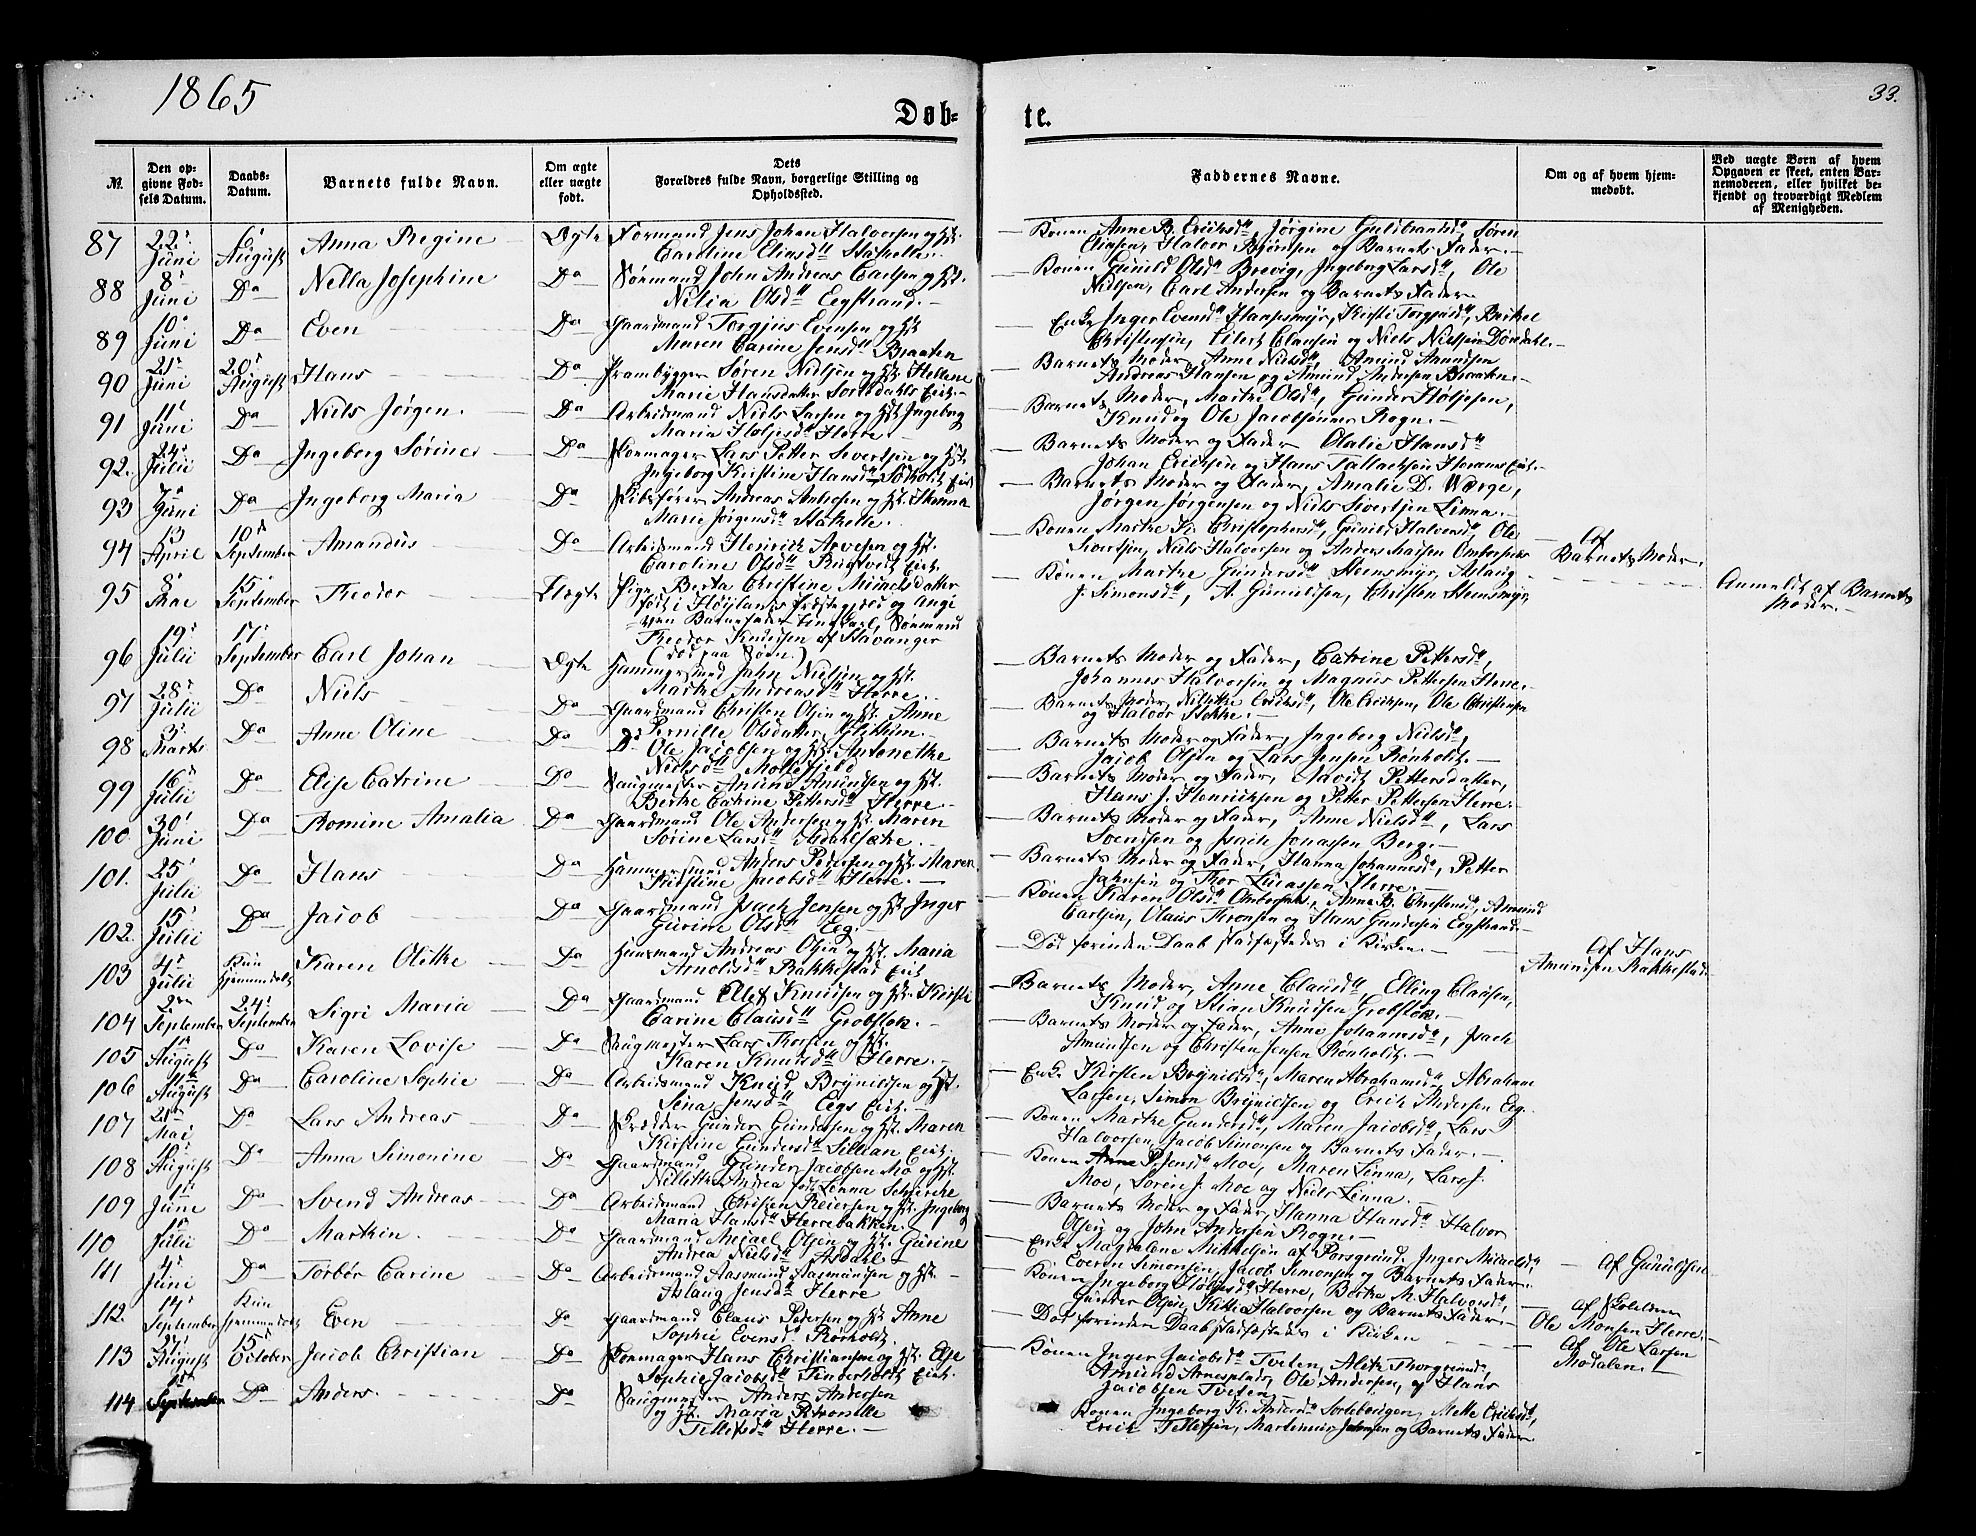 1865
33.
Døb-
te.
№.
Den op-
givne Fød-
sels Datum.
Daabs-
Datum.
Barnets fulde Navn.
Om ægte
eller uægte
født.
Dets
Forældres fulde Navn, borgerlige Stilling og
Opholdssted.
Faddernes Navne.
Om og af hvem hjem-
medøbt.
Ved uægte Børn af hvem
Opgaven er skeet, enten Bar-
nemoderen, eller hvilket be-
kjendt og troværdigt Medlem
af Menigheden.
87 22 Juni 6 August Anna Regine Ægte Formand Jens Johan Halvorsen og H.
Caroline Eliasd. Stathelle.
88 8 Juni Do Nella Josephine Do Sømand John Andreas Carlsen og H.
Nilia Olsd. Eegstrand.
89 10 Juni Do Even Do Gaardmand Torgjus Evensen og H.
Maren Carine Jensd. Braaten
90 21 Juni 20 August Hans Do Prambygger Søren Nielsen og H. Hellene
Marie Hansdatter
91 11 Juni Do Niels Jørgen Do Arbeidsmand Niels Larsen og H. Ingeborg
Maria Holjesd. Herre.
92. 24 Julii Do Ingeborg Sørine Do Skomager Lars Petter Sivertsen og H.
Ingeborg Kristine Hansd.
93 7 Juni Do Ingeborg Maria Do Skibsfører Andreas Andersen og H.
Marie Jørgensd. Stathelle.
94 13 April 10 September Amandus Do Arbeidsmand Henrick Arvesen og H.
Caroline Olsd.
95 8 Mai 15 September Theodor Uægte Pige Berta Christine Michaelsdatter
født i Høylands Præstegjeld og angi-
ven Barnefader Ungkarl, Sømand
Theodor Knudsen af Stavanger
(død paa Søen.)
96 19 Julii 17 September Carl Johan Ægte Hammersmed Jahn Nielsen og H.
Marthe Andreasd. Herre.
97 28 Julii Do Niels Do Gaardmand Christen Olsen og H. Anne
Pernille Olsdatter
98 3 Marts Do Anne Oline Do Do Ole Jacobsen og H. Antonethe
Nielsd. Mollefjeld
99 16 Julii Do Elise Catrine Do Saugmester Amund Amundsen og H.
Berthe Catrine Pettersd. Herre.
100. 30 Juni Do Romine Amalia Do Gaardmand Ole Andersen og H. Maren
Sørine Larsd.
101. 25 Julii Do Hans Do Hammersmed Anders Pedersen og H. Maren
Kirstine Jacobsd. Herre.
102. 15 Julii Do Jacob Do Gaardmand Isach Jensen og H. Inger
Gurine Olsd. Eeg.
103 4 Julii Kun hjemmedøbt Karen Olithe Do Huusmand Andreas Olsen og H. Maria
Arnoldsd. Rakkestad Eiet
104 2 September 24 September Sigri Maria Do Gaardmand Ellef Knudsen og H. Kirsti
Carine Clausd. Grobstok.
105 1 August Do Karen Lovise Do Saugmester Lars Thorsen og H.
Karen Knudsd. Herre.
106 August Do Caroline Sophie Do Arbeidsmand Knud Brynildsen og H.
Sina Jensd. Eegs Eiet.
107 Mai Do Lars Andreas Do Skrædder Gunder Gundersen og H. Maren
Kirstine Gundersd.
108 19 August Do Anna Simonine Do Gaardmand Gunder Jacobsen Mo og H.
Andrea født Linna
109 1 June Do Svend Andreas Do Arbeidsmand Christen Reiersen og H. Ingeborg
Maria Hansd. Herrebakken.
110 1 Julii Do Marthin Do Gaardmand Micael Olsen og H. Gurine
Andrea Nielsd. Asdahl.
111 4 Juni Do Torbør Carine Do Arbeidsmand Aasmund Aasmundsen og H.
Aslaug Jensd. Herre
112. 14 September Kun hjemmedøbt Even Do Gaardmand Claus Pedersen og H. Anne
Sophie Evensd. Rørholdt
113 27 August 15 October Jacob Christian Do Skomager Hans Christiansen og H. Else
Sophie Jacobsd.
114 September Do Anders. Do Saugmester Anders Andersen
og H. Maria Petronelle
Tellefsd. Herre.
Konen Anne B. Ericksd., Jørgine Guldbrandsd., Søren
Eliasen, Halvor Bjørnsen og Barnets Fader.
Konen Gunild Olsd. Brevig, Ingeborg Larsd., Ole
Nielsen, Carl Andersen og Barnets Fader.
Enke Inger Evensd.
Christensen, Eilert Clausen og Niels Nielsen
Barnets Moder, Anne Nielsd., Amund Amundsen
Andreas Hansen og Amund Andersen Braaten.
Barnets Moder, Marthe Olsd., Gunder Holjesen,
Knud og Ole Jacobsønner Rogn.
Barnets Moder og Fader Olalie Hansd.
Johan Ericksen og Hans Tallacksen
Barnets Moder og Fader, Amalie D. Worge,
Jørgen Jørgensen og Niels Sivertsen Linna.
Konen Marthe K. Christophersd., Gunild Halvorsd., Ole
Sivertsen, Niels Halvorsen og Anders
Konen Marthe Gundersd. Stensmyr, Aslaug
J. Simonsd., A. Gunuldsen, Christen Stensmyr.
Barnets Moder og Fader, Catrine Pettersd.,
Johannes Halvorsen og Magnus Pettersen Herre.
Barnets Moder, Ericksd., Ole Ericksen, Ole Christensen
og Halvor Stokke.
Barnets Moder og Fader, Ingeborg Nielsd.,
Jacob Olsen og Lars Jensen Rønholdt.
Barnets Moder og Fader, Pettersdatter,
Hans J. Henricksen og Petter Pettersen Herre.
Barnets Moder og Fader, Anne Nielsd., Lars
Svendsen og Isach Jonassen Berg.
Barnets Moder og Fader, Hanna Johannesd., Petter
Jahnsen og Thor Lucassen Herre.
Konen Karen Olsd. Anne B. Christensd., Amund
Carlsen, Olaus Thronsen og Hans Gundersen Eegstrand.
Død forinden Daab stadfæstedes i Kirken.
Barnets Moder, Anne Clausd., Elling Clausen,
Knud og Stian Knudsen Grobstok.
Barnets Moder og Fader, Anne Johannesd., Isach
Amundsen og Christen Jensen Rønholdt.
Enke Kirsten Brynildsd., Maren Abrahamsd., Abraham
Larsen, Simon Brynildsen og Erick Andersen Eeg.
Konen Marthe Gundersd., Maren Jacobsd., Lars
Halvorsen, Jacob Simonsen og Barnets Fader.
Konen Anne P. Jensd. Moe, Maren Linna, Lars J.
Moe, Søren J. Moe og Niels Linna.
Barnets Moder og Fader, Hanna Hansd., Halvor
Olsen og John Andersen Rogn.
Enke Magdalene Mikkelsen af Porsgrund, Inger Micaelsd.,
Everen Simonsen, Jacob Simonsen og Barnets Fader.
Konen Ingeborg Holjesd. Herre, Berthe M. Halvorsd.,
Gunder Olsen, Kittil Halvorsen og Barnets Fader.
Død forinden Daab stadfæstedes i Kirken
Konen Inger Jacobsd. Tveten,
Amund Ole Andersen, og Hans
Jacobsen Tveten
Konen Ingeborg K. Andersd. Mette Ericksd.,
Erick Tellefsen, Jahnsen og Barnets Fader.
Af
Barnets Moder.
Anmeldt af Barnets
Moder.
Af Hans
Amundsen Rakkestad
Af Gunuldsen
Af
Ole Monsen Herre.
Af Ole Larsen
Modalen.